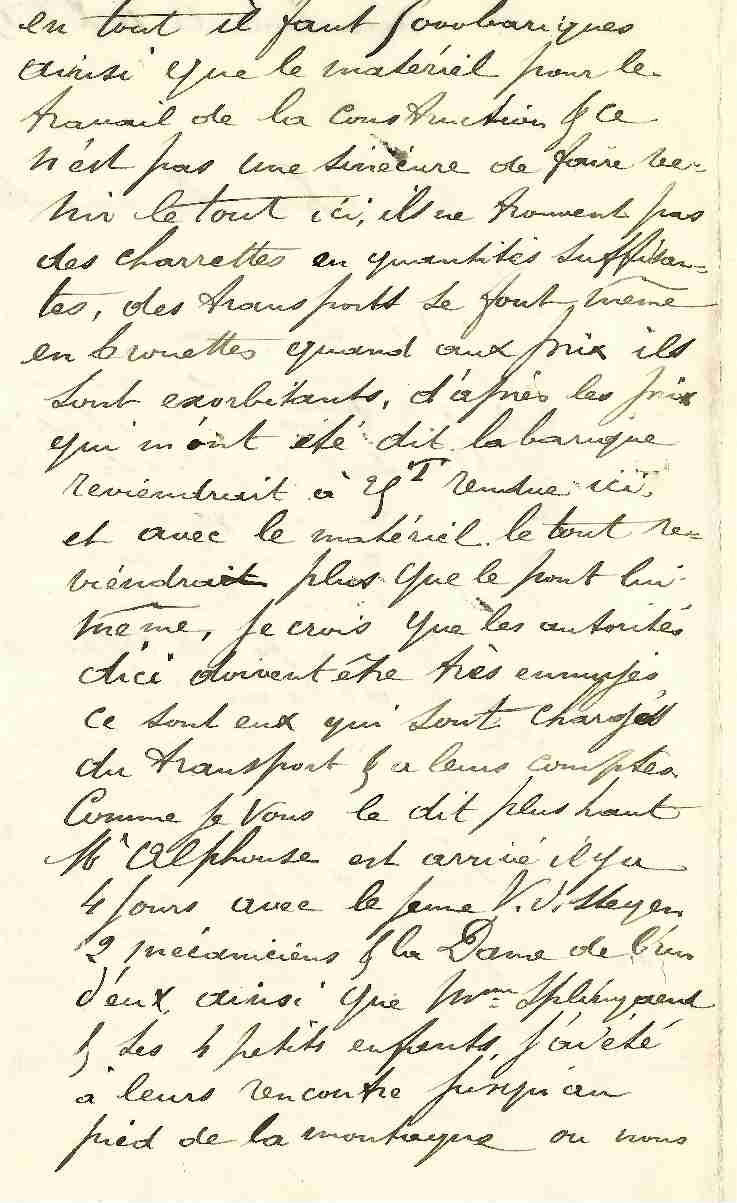 en tout il faut 5000 bariques
ainsi que le matériel pour le
travail de la construction & ce
n'est pas une sinécure de faire ve-
nir le tout ici, ils ne trouvent pas
des charrettes en quantités suffisan-
tes, des transports se font même
en brouettes quand aux prix ils
sont exorbitants, d'après les prix
qui m'ont été dit la barique
reviendrait à rendue ici,
et avec le matériel le tout re-
viendrait plus que le pont lui
même, je crois que les autorités
d'ici doivent être très ennuyés
ce sont eux qui sont chargés
du transport & a leurs comptes
Comme je vous le dit plus haut
Mr Alphonse est arrivé il y a
4 jours avec le jeune V. d.
2 mécaniciens & la Dame de l'un
d'eux, ainsi que Mme
& ses 4 petits enfants, j'ai été
à leurs rencontre jusqu'au
pied de la montagne ou nous